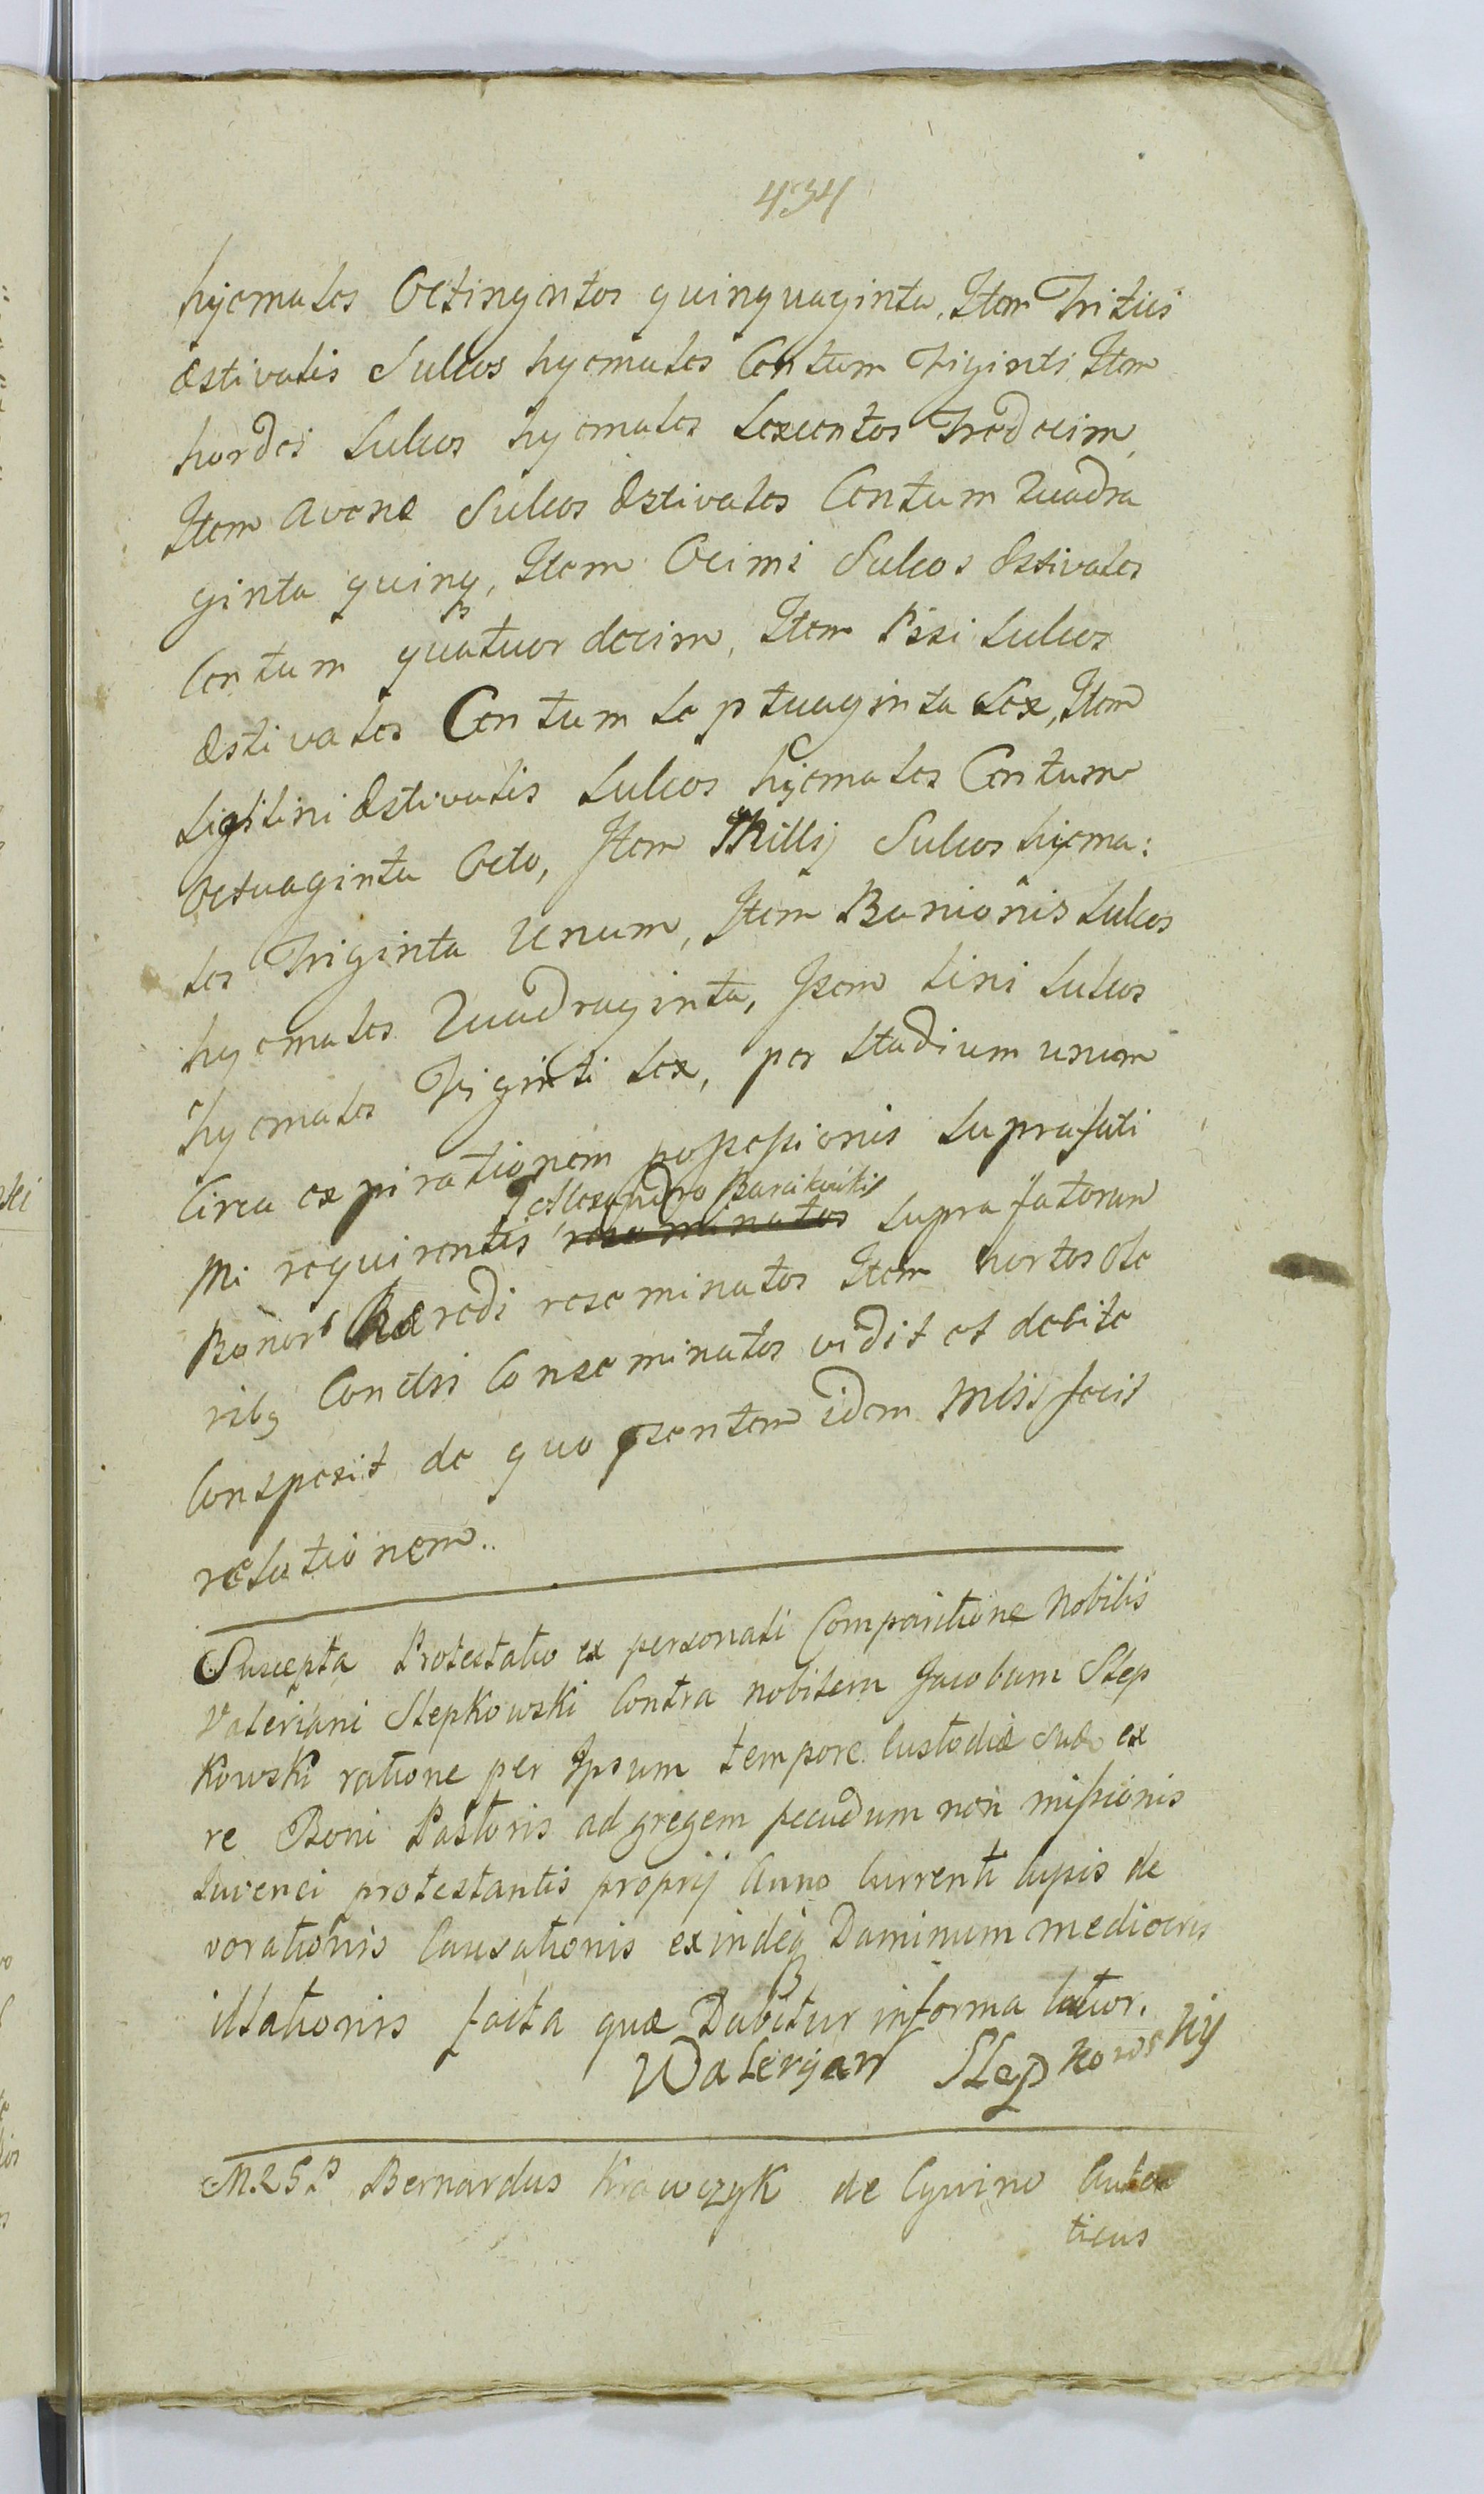 434
hyemales Octingentos quinquaginta, Item Tritici
æstivalis Sulcos hyemales Centum Viginti, Item
hordei Sulcos hyemales Sexcentos Tredecim,
Item avenæ Sulcos æstivales Centum Quadra
ginta quinq, Item Ocimi Sulcos æstivales
Centum quatuor decim, Item Pisi Sulcos
æstivales Centum Septuaginta Sex, Item
Sigilini æstivalis Sulcos hyemales Centum
Octuaginta Octo, Item Millij Sulcos hyema:
les Triginta Unum, Item Banionis Sulcos
hyemales Quadraginta, Item Lini Sulcos
hyemales Viginti Sex, per Stadium unum
Circa expirationem possessionis Suprafati
Alexandro
Mi requirentis reseminatos Suprafatorum
Bonor Hæredi reseminatos Item hortos Ole
ribq Conctri Conseminatos vidit et debite
Conspexit de quo psentem idem Mlis fecit
relationem..
Suscepta Protestatio ex personali Comparitione Nobilis
Valeriani Stepkowski Contra nobilem Jacobum Step
kowski ratione per Ipsum tempore Custodiæ suæ ex
re Boni Pastoris ad gregem pecudum non missionis
Juvenci protestantis proprij Anno Currenti lupis de
vorationis Causationis exindeq Daminum mediocris
illationis facta quæ Dabitur in forma latior.
Waleryan Stepkowskij
M. 2 S. P Bernardus Krawczyk de Cguino Auten
ticus